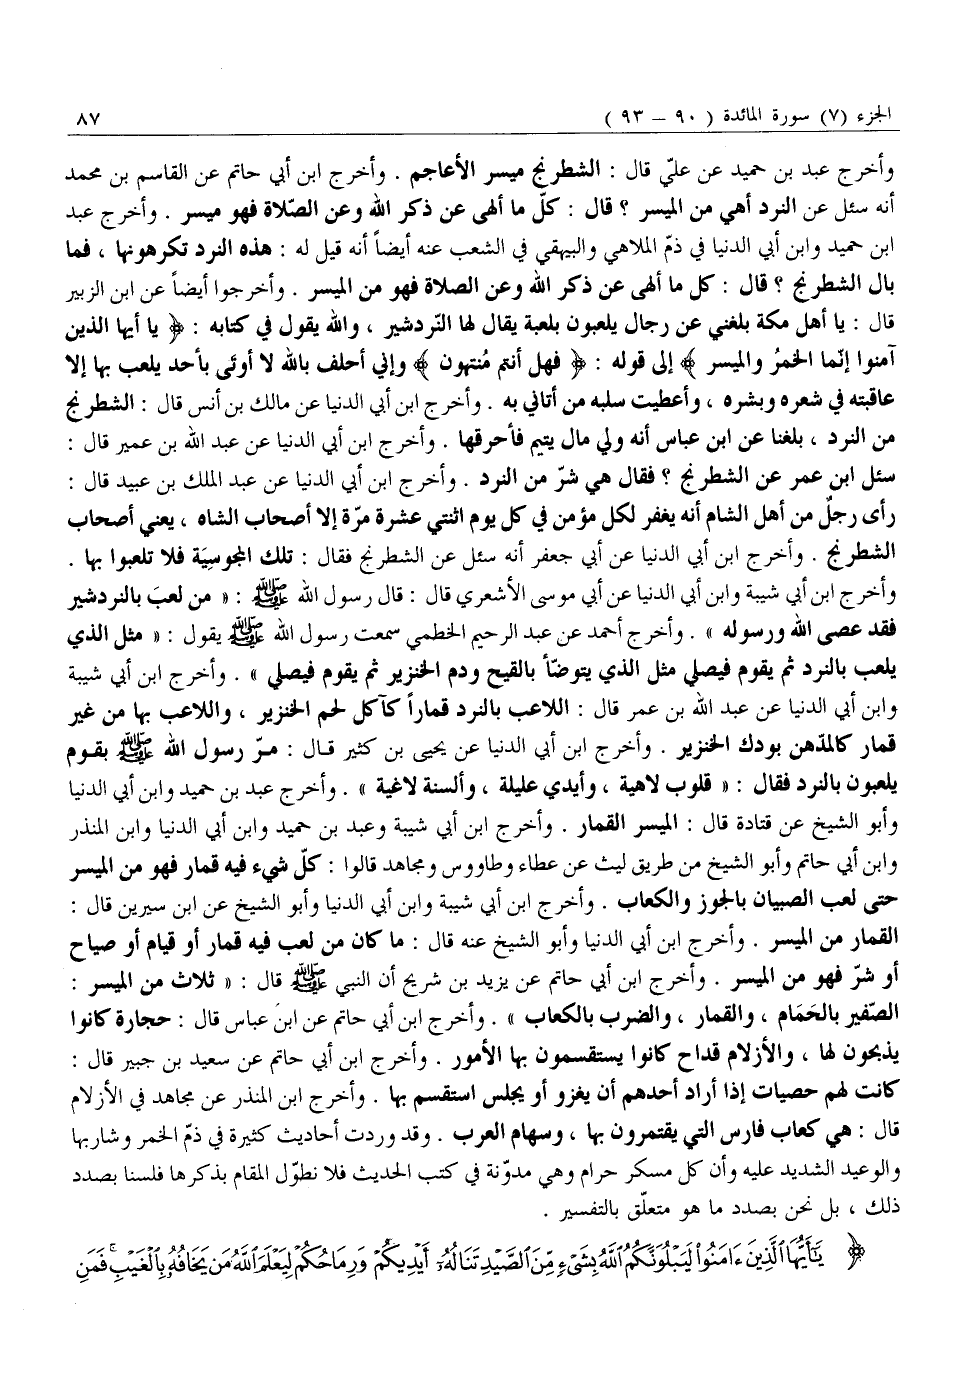 الجزء (٧) سورة المائدة ( ٩٠ – ٩٣ ) ٨٧
وأخرج عبد بن حميد عن عليّ قال : الشطرنج ميسر الأعاجم . وأخرج ابن أبي حاتم عن القاسم بن محمد
أنه سئل عن النرد أهي من الميسر ؟ قال : كلّ ما ألهى عن ذكر الله وعن الصّلاة فهو ميسر . وأخرج عبد
ابن حميد وابن أبي الدنيا في ذمّ الملاهي والبيهقي في الشعب عنه أيضاً أنه قيل له : هذه النرد تكرهونها ، فما
بال الشطرنج ؟ قال : كل ما ألهى عن ذكر الله وعن الصلاة فهو من الميسر . وأخرجوا أيضاً عن ابن الزبير
قال : يا أهل مكة بلغني عن رجال يلعبون بلعبة يقال لها النّردشير ، والله يقول في كتابه : ﴿ يا أيها الذين
آمنوا إنّما الخمرُ والميسر ﴾ إلى قوله : ﴿ فهل أنتم مُنتهون ﴾ وإني أحلف بالله لا أوتى بأحد يلعب بها إلا
عاقبته في شعره وبشره ، وأعطيت سلبه من أتاني به . وأخرج ابن أبي الدنيا عن مالك بن أنس قال : الشطرنج
من النرد ، بلغنا عن ابن عباس أنه ولي مال يتيم فأحرقها . وأخرج ابن أبي الدنيا عن عبد الله بن عمير قال :
سئل ابن عمر عن الشطرنج ؟ فقال هي شرّ من النرد . وأخرج ابن أبي الدنيا عن عبد الملك بن عبيد قال :
رأى رجلٌ من أهل الشام أنه يغفر لكل مؤمن في كل يوم اثنتي عشرة مرّة إلا أصحاب الشاه ، يعني أصحاب
الشطرنج . وأخرج ابن أبي الدنيا عن أبي جعفر أنه سئل عن الشطرنج فقال : تلك المجوسيّة فلا تلعبوا بها .
وأخرج ابن أبي شيبة وابن أبي الدنيا عن أبي موسى الأشعري قال : قال رسول الله ﷺ : « من لعبَ بالنردشير
فقد عصى الله ورسوله » . وأخرج أحمد عن عبد الرحيم الخطمي سمعت رسول الله ﷺ يقول : « مثل الذي
يلعب بالنرد ثم يقوم فيصلي مثل الذي يتوضّأ بالقيح ودم الخنزير ثم يقوم فيصلي » . وأخرج ابن أبي شيبة
وابن أبي الدنيا عن عبد الله بن عمر قال : اللاعب بالنرد قماراً كآكل لحم الخنزير ، واللاعب بها من غير
قمار كالمدّهن بودك الخنزير . وأخرج ابن أبي الدنيا عن يحيى بن كثير قال : مرّ رسول الله ﷺ بقوم
يلعبون بالنرد فقال : « قلوب لاهية ، وأيدي عليلة ، وألسنة لاغية » . وأخرج عبد بن حميد وابن أبي الدنيا
وأبو الشيخ عن قتادة قال : الميسر القمار . وأخرج ابن أبي شيبة وعبد بن حميد وابن أبي الدنيا وابن المنذر
وابن أبي حاتم وأبو الشيخ من طريق ليث عن عطاء وطاووس ومجاهد قالوا : كلّ شيء فيه قمار فهو من الميسر
حتى لعب الصبيان بالجوز والكعاب . وأخرج ابن أبي شيبة وابن أبي الدنيا وأبو الشيخ عن ابن سيرين قال :
القمار من الميسر . وأخرج ابن أبي الدنيا وأبو الشيخ عنه قال : ما كان من لعب فيه قمار أو قيام أو صياح
أو شرّ فهو من الميسر . وأخرج ابن أبي حاتم عن يزيد بن شريح أن النبي ﷺ قال : « ثلاث من الميسر :
الصّفير بالحَمَام ، والقمار ، والضرب بالكعاب » . وأخرج ابن أبي حاتم عن ابن عباس قال : حجارة كانوا
يذبحون لها ، والأزلام قداح كانوا يستقسمون بها الأمور . وأخرج ابن أبي حاتم عن سعيد بن جبير قال :
كانت لهم حصيات إذا أراد أحدهم أن يغزو أو يجلس استقسم بها . وأخرج ابن المنذر عن مجاهد في الأزلام
قال : هي كعاب فارس التي يقتمرون بها ، وسهام العرب . وقد وردت أحاديث كثيرة في ذمّ الخمر وشاربها
والوعيد الشديد عليه وأن كل مسكر حرام وهي مدوّنة في كتب الحديث فلا نطوّل المقام بذكرها فلسنا بصدد
ذلك ، بل نحن بصدد ما هو متعلّق بالتفسير .
﴿ يَٰٓأَيُّهَا ٱلَّذِينَ ءَامَنُوا۟ لَيَبْلُوَنَّكُمُ ٱللَّهُ بِشَىْءٍ مِّنَ ٱلصَّيْدِ تَنَالُهُۥٓ أَيْدِيكُمْ وَرِمَاحُكُمْ لِيَعْلَمَ ٱللَّهُ مَن يَخَافُهُۥ بِٱلْغَيْبِ ۚ فَمَنِ